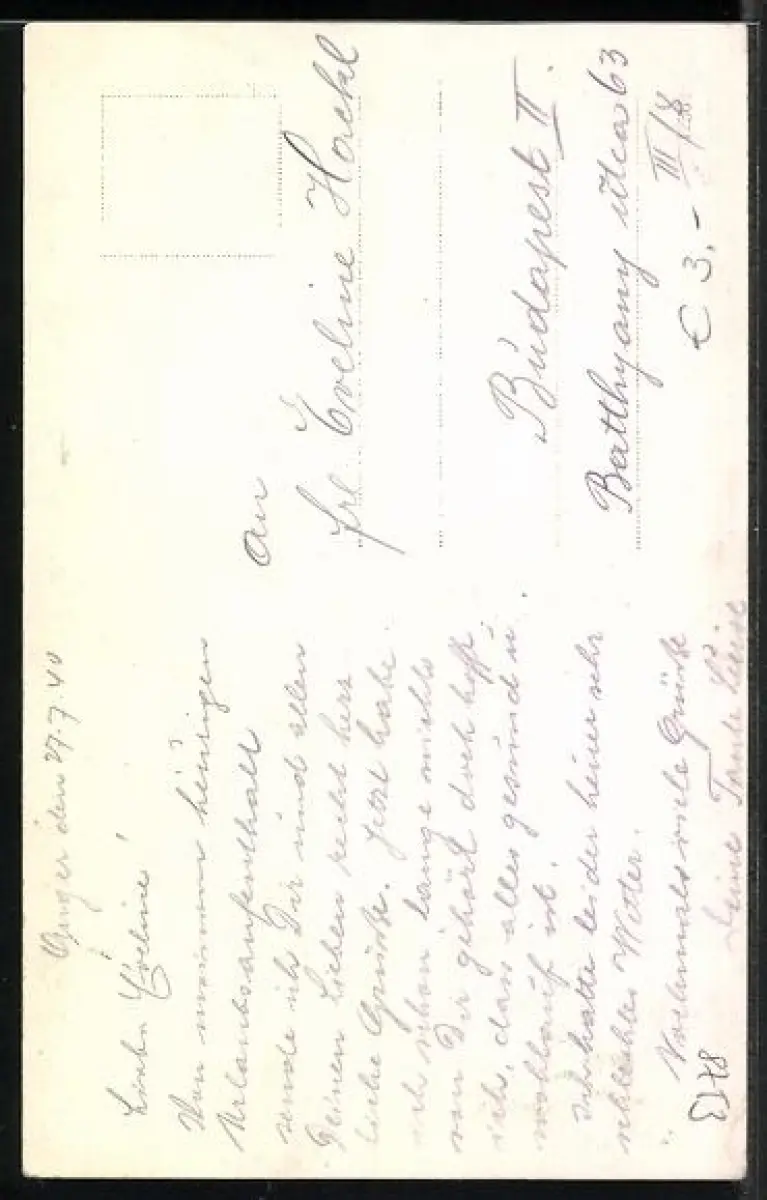 Anger den 27.7.40
Liebe Eveline!
Von meinem heurigen
Urlaubsaufenthalt
sende ich Dir und allen
Deinen Lieben recht herz
liche Grüße. Jetzt habe
ich schon lange nichts
von Dir gehört doch hoff
ich, dass alles gesund u.
wohlauf ist.
Ich hatte leider heuer sehr
schlechtes Wetter.
Nochmals viele Grüße
Deine Tante Luise
An
Frl. Eveline Hockl
Budapest II.
Batthyany utca 63
III/8
€ 3,-